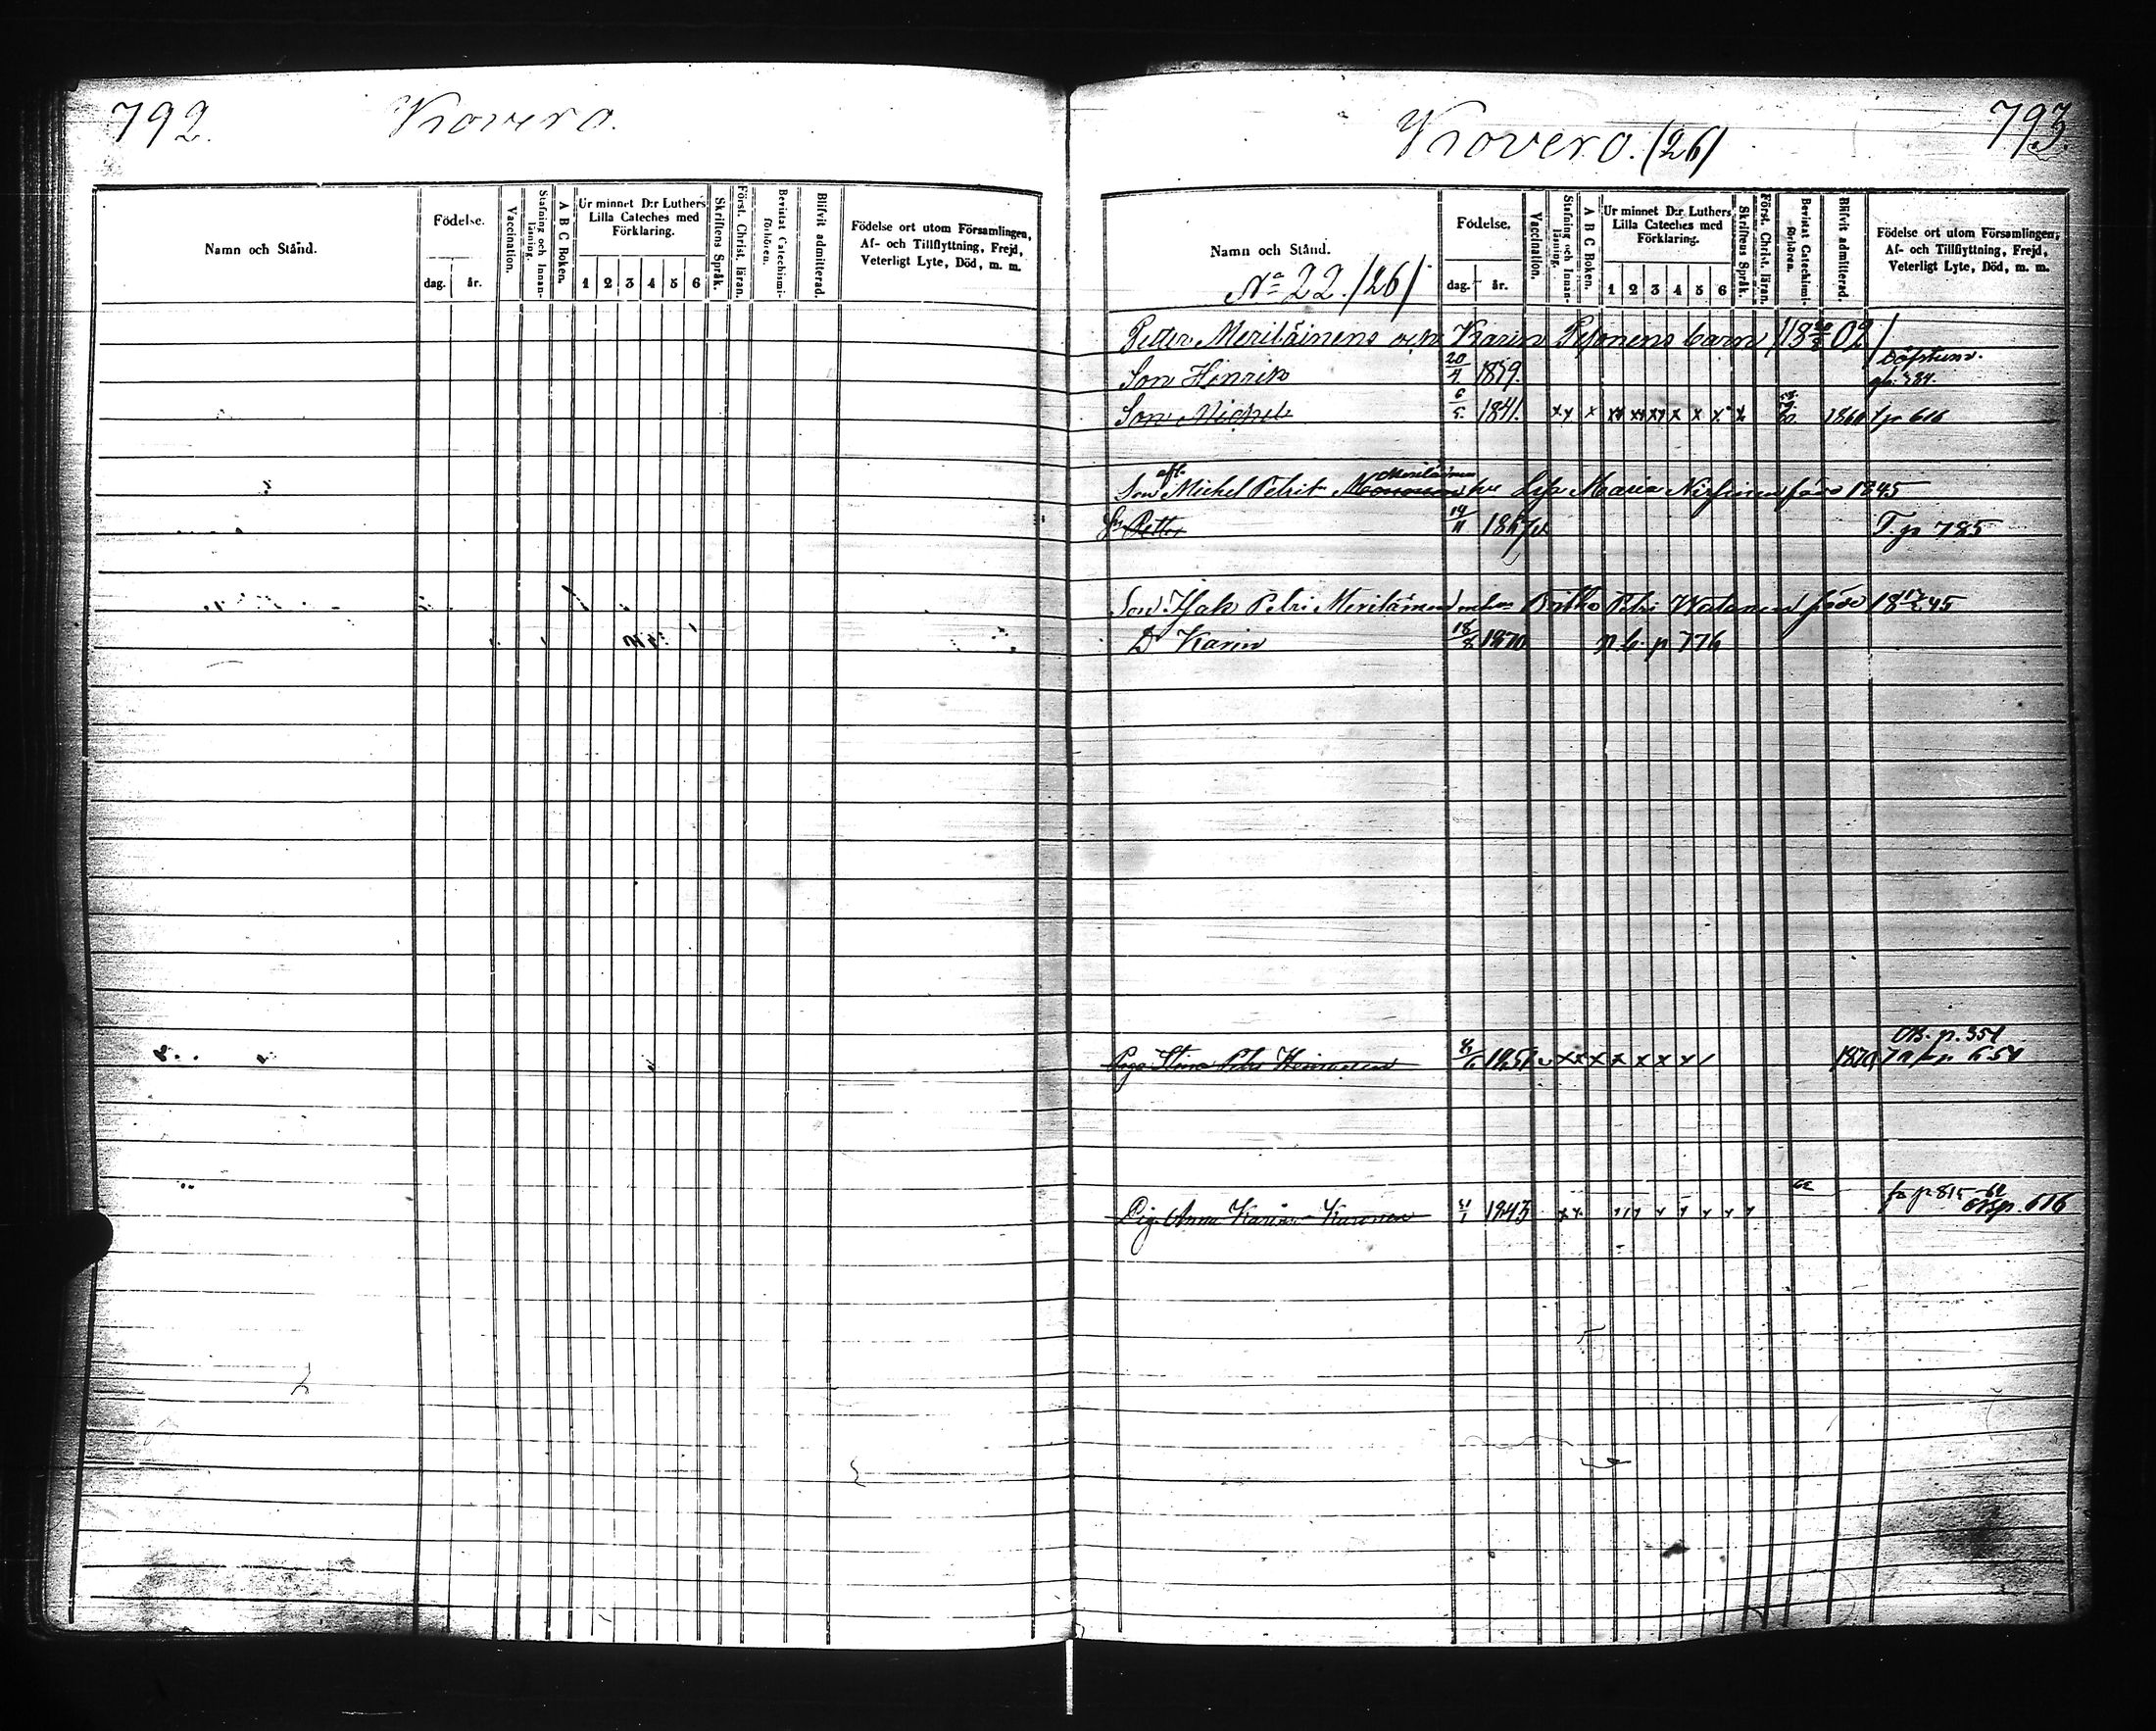 792.
Kovero.
Namn och Stånd.
Födelse.
dag. år.
Vaccination.
Stafning och Innanläsning.
A B C Boken.
Ur minnet D:r Luthers Lilla Cateches med Förklaring.
1 2 3 4 5 6
Skriftens Språk.
Förstr. Christ. läran.
Bevistat Catechismiförhören.
Blifvit admitterad.
Födelse ort utom Församlingen, Af- och Tillflyttning, Frejd, Veterligt Lyte, Död, m. m.
793.
Kovero. /26/
Namn och Stånd.
No 22. /26/
Födelse.
dag. år.
Vaccination.
Stafning och Innanläsning.
A B C Boken.
Ur minnet D:r Luthers Lilla Cateches med Förklaring.
1 2 3 4 5 6
Skriftens Språk.
Förstr. Christ. läran.
Bevistat Catechismiförhören.
Blifvit admitterad.
Födelse ort utom Församlingen, Af- och Tillflyttning, Frejd, Veterligt Lyte, Död, m. m.
Petter Meriläinens och Karin Pesonens barn 02
döfstum.
Son Henrik 20/4 1859. 784.
Son Michel 6/5 1841. x x x x x x x x x 1860 p 616
Meriläinen
Son Michel Petrit hu Lisa Maria född 1845
Sn Petter 14/11 1867 T. p 785
Son Isak Petri Meriläinen Petri Watanen född 18 45
Dr Karin 18/8 1870 n b. p 776
OB. p. 351
Piga Stina Petri 1851 x x x x x x x 1870 p 651
Pig. Anna Karin 4/1 1843 x x p 815 62
p. 616